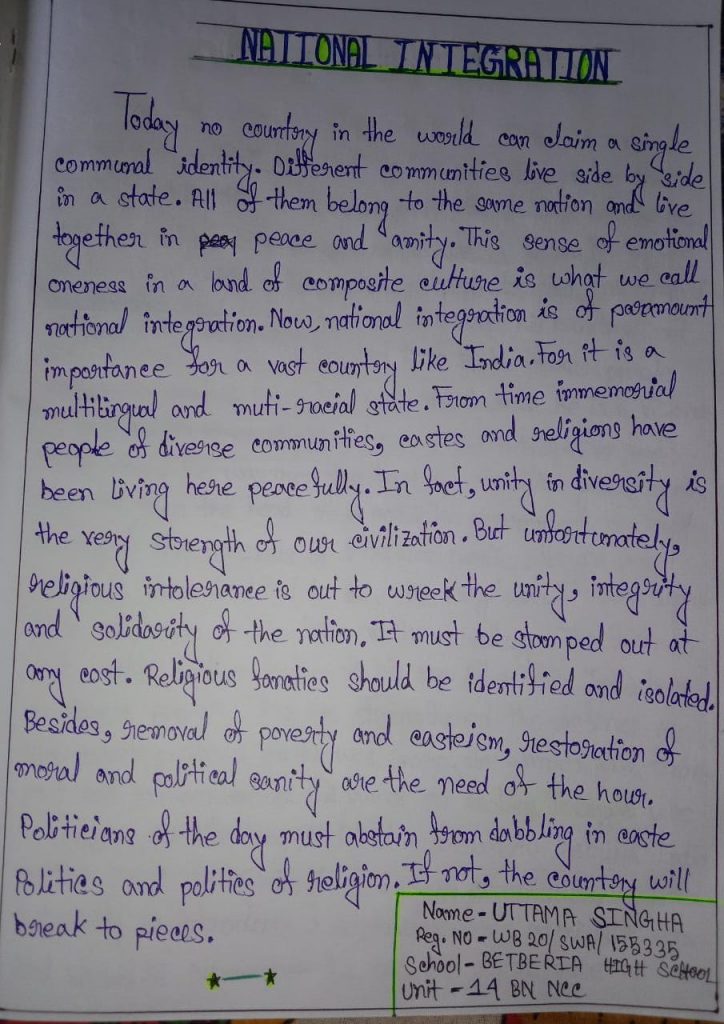 NATIONAL INTEGRATION
Today no country in the world can claim a single
communal identity. Different communities live side by side
in a state. All of them belong to the same nation and live
together in peace and amity. This sense of emotional
oneness in a land of composite culture is what we call
national integration. Now, national integration is of paramount
importance for a vast country like India. For it is a
multilingual and muti-racial state. From time immemorial
people of diverse communities, castes and religions have
been living here peacefully. In fact, unity in diversity is
the very strength of our civilization. But unfortunately,
religious intolerance is out to wreck the unity, integrity
and solidarity of the nation. It must be stamped out at
any cost. Religious fanatics should be identified and isolated.
Besides, removal of poverty and casteism, restoration of
moral and political sanity are the need of the hour.
Politicians of the day must abstain from dabbling in caste
Politics and politics of religion. If not, the country will
break to pieces.
Name - UTTAMA SINGHA
Reg. NO - WB 20/ SWA/ 155335
School - BETBERIA HIGH SCHOOL
Unit - 14 BN NCC